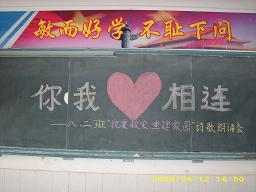 敏而好学 不耻下问
你我 相连
——八.二班"抗震救灾,重建家园"诗歌朗诵会
2008/06/12 16:50